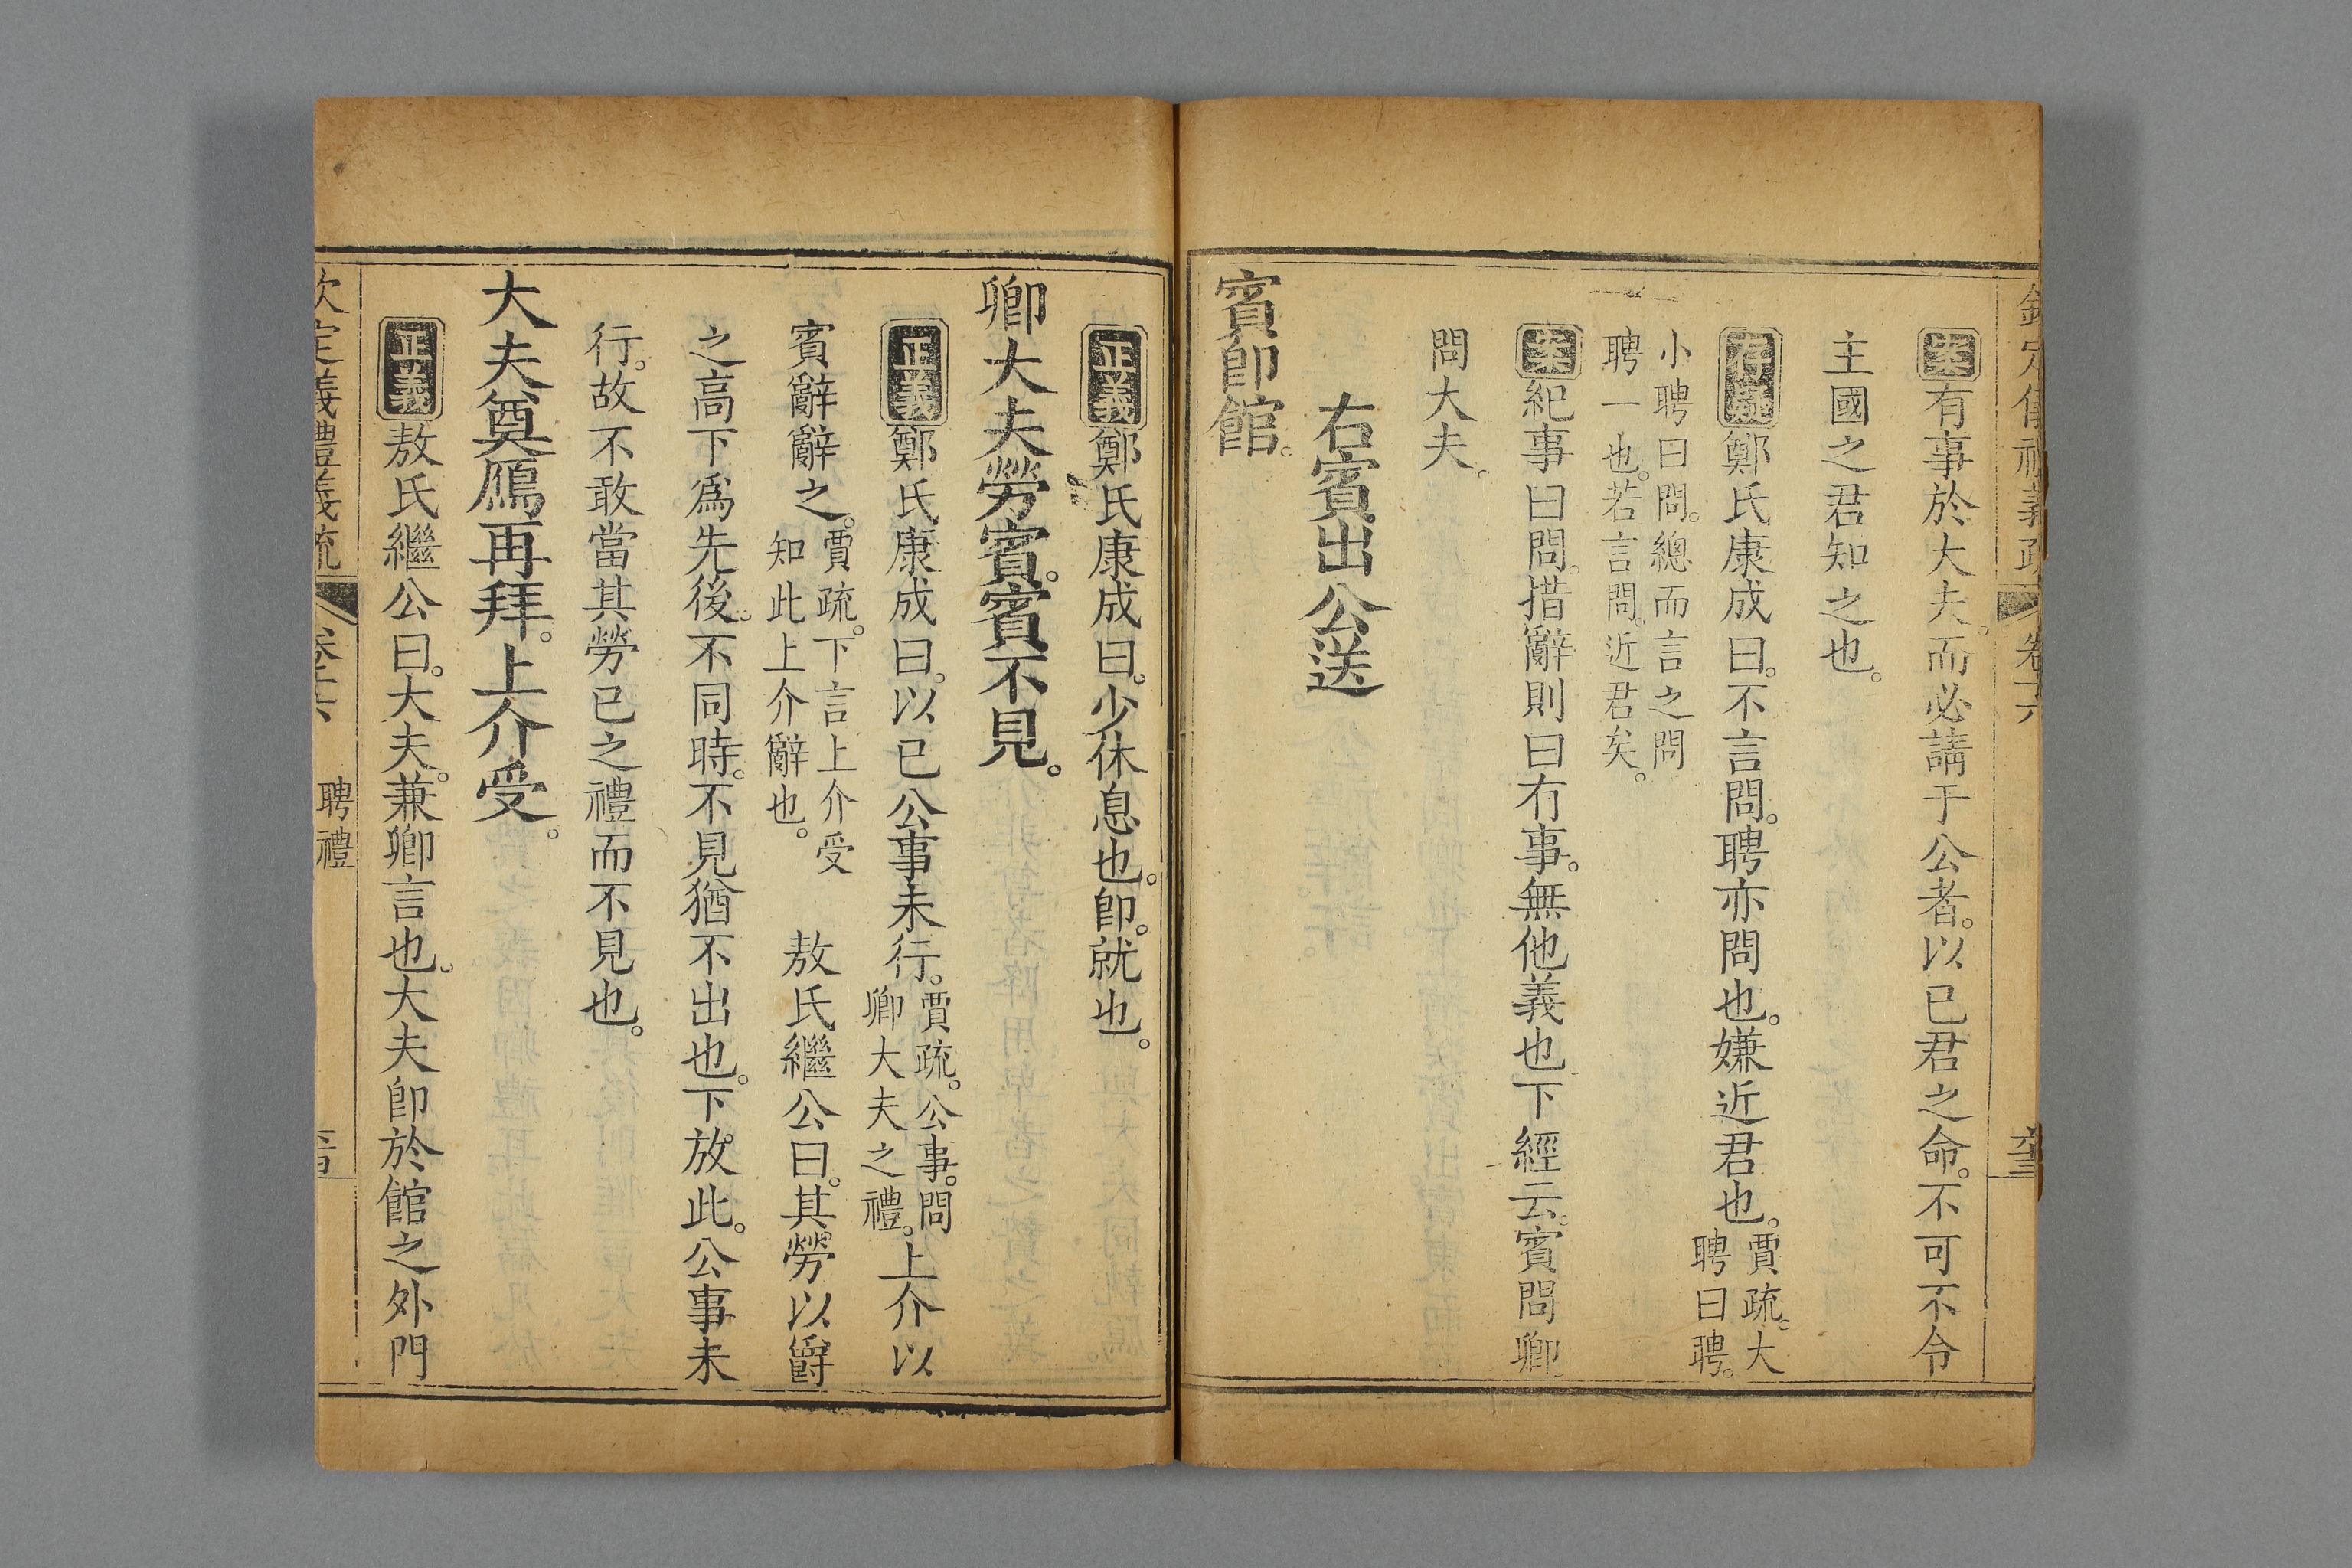 欽定儀禮義疏 卷十六
案有事於大夫。而必請于公者。以已君之命。不可不令
主國之君知之也。
存疑鄭氏康成曰。不言問。聘亦問也。嫌近君也。賈疏。大聘曰聘。
小聘曰問。總而言之問聘一也。若言問。近君矣。
案紀事曰問。措辭則曰有事。無他義也下經云。賓問卿
問大夫。
右賓出公送
賓卽館。
正義鄭氏康成曰。少休息也。卽。就也。
卿大夫勞賓。賓不見。
正義鄭氏康成曰。以已公事未行。賈疏。公事。問卿大夫之禮。上介以
賓辭辭之。賈疏。下言上介受知此上介辭也。 敖氏繼公曰。其勞以爵
之高下爲先後。不同時。不見猶不出也。下放此。公事未
行。故不敢當其勞已之禮而不見也。
大夫奠鴈再拜。上介受。
正義敖氏繼公曰。大夫。兼卿言也。大夫卽於館之外門
欽定義禮義疏 卷十六 聘禮